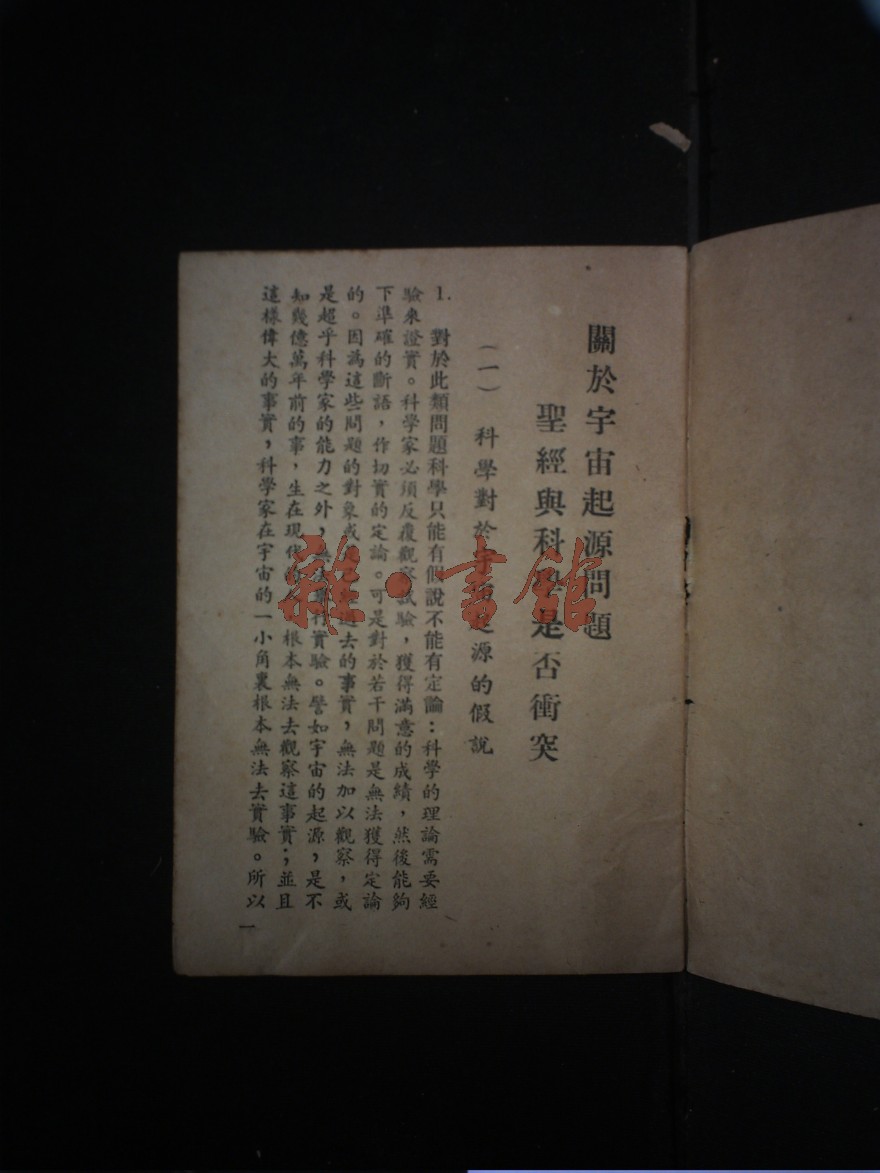 關於宇宙起源問題
聖經與科學是否衝突
（一）　科學對於宇宙起源的假說
1.　對於此類問題科學只能有假說不能有定論：科學的理論需要經
驗來證實。科學家必須反覆觀察試驗，獲得滿意的成績，然後能夠
下準確的斷語，作切實的定論。可是對於若干問題是無法獲得定論
的。因爲這些問題的對象或是過去的事實，無法加以觀察，或
是超乎科學家的能力之外，無法舉行實驗。譬如宇宙的起源，是不
知幾億萬年前的事，生在現代的根本無法去觀察這事實；並且
這樣偉大的事實，科學家在宇宙的一小角裏根本無法去實驗。所以
一
雜·書館